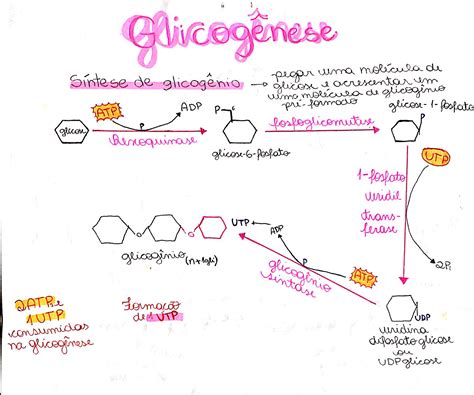 Glicogênese
Síntese de glicogênio → pegar uma molécula de
glicose e acrescentar em
uma molécula de glicogênio
pré-formado
glicose-1-fosfato
ATP
ADP
P
P
P
glicose
Hexoquinase
fosfoglicomutase
glicose-6-fosfato
UTP
1-fosfato
uridil
trans-
ferase
2Pi
UTP
ADP
P
ATP
glicogênio
glicogênio
sintase
UDP
uridina
difosfato glicose
ou
UDP glicose
2 ATP e
1 UTP
consumidas
na glicogênese
Formação
de 1 UTP